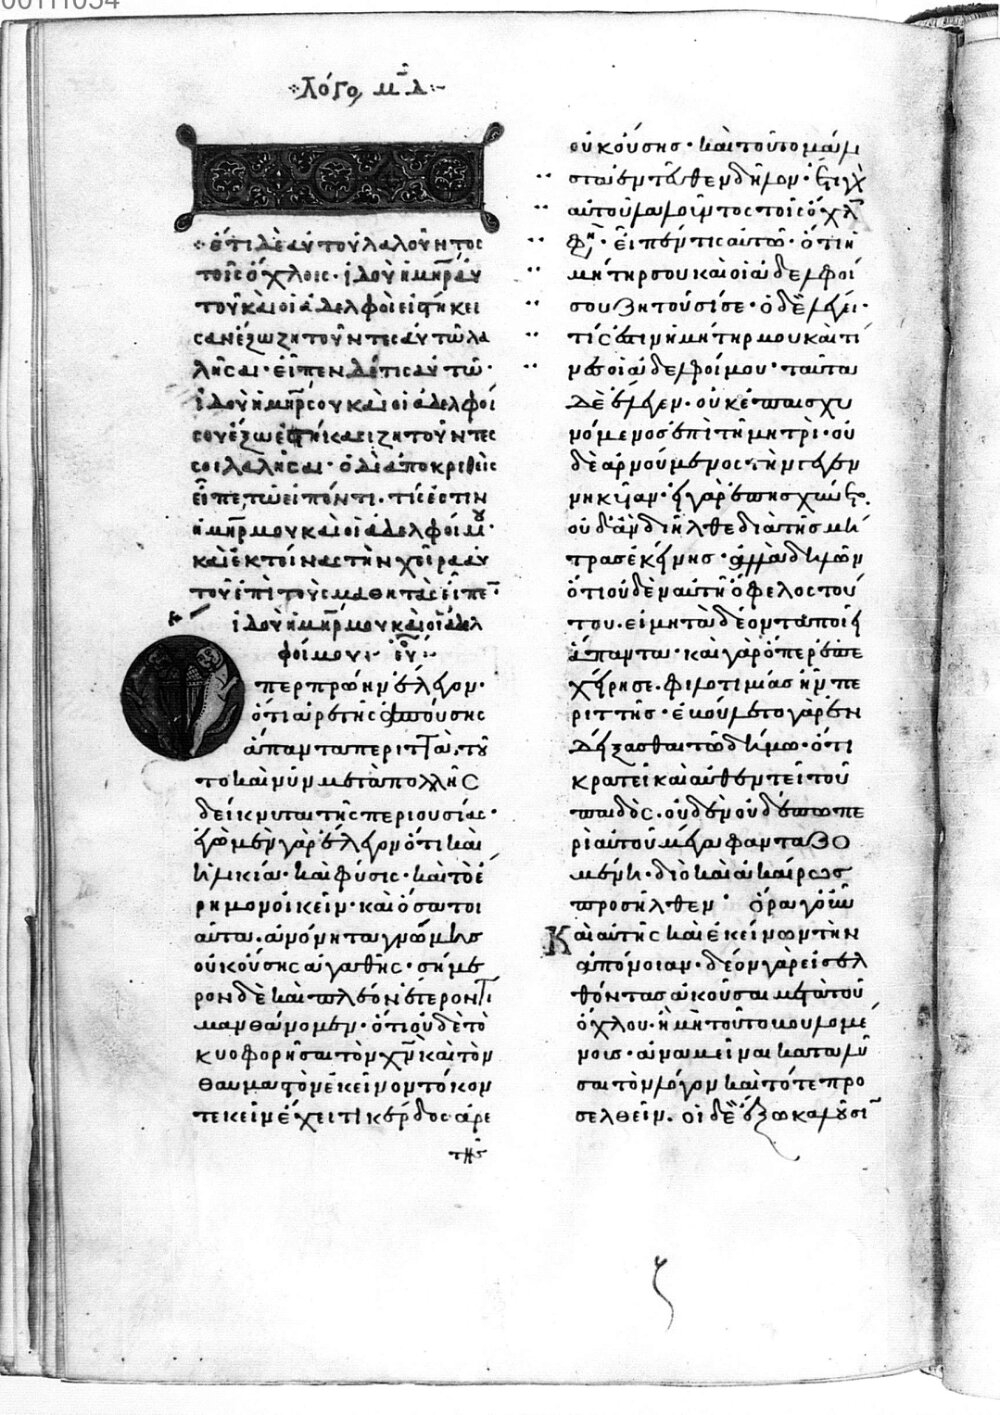 00111054
λόγο, μδ
ἔτι δὲ αὐτοῦ λαλοῦντος
τοῖς ὄχλοις· ἰδοὺ ἡ μηρ αὐ
τοῦ καὶ οἱ ἀδελφοὶ εἱστήκει
σαν ἔξω ζητοῦντες αὐτῶ λα
λῆσαι· εἶπεν δέ τις αὐτῶ·
ἰδοὺ ἡ μηρ σου καὶ οἱ ἀδελφοί
σου ἔξω ἑστήκασι ζητοῦντές
σοι λαλῆσαι· ὁ δὲ ἀποκριθεὶς
εἶπε τῶ εἰπόντι· τίς ἐστιν
ἡ μηρ μου καὶ οἱ ἀδελφοί μου·
καὶ ἐκτείνας τὴν χεῖρα αὐ
τοῦ ἐπὶ τοὺς μαθητὰς εἶπε·
ἰδοὺ ἡ μηρ μου καὶ οἱ ἀδελ
φοί μου:
περ πρώην ἔλεγον·
ὅτι ἀρετῆς ἀπούσης
ἅπαντα περιττά· τοῦ
το καὶ νῦν μετὰ πολλῆς
δείκνυται τῆς περιουσίας·
ἐγὼ μὲν γὰρ ἔλεγον ὅτι καὶ
ἡλικία· καὶ φύσις· καὶ τὸ ἔ
ρημον οἰκεῖν· καὶ ὅσα τοι
αῦτα· ἀνόνητα γνώμης
οὐκ οὔσης ἀγαθῆς· σήμε
ρον δὲ καὶ πλέον ἕτερόν τι
μανθάνομεν· ὅτι οὐδὲ τὸ
κυοφορῆσαι τὸν χν καὶ τὸν
θαυμαστὸν ἐκεῖνον τόκον
τεκεῖν ἔχει τι κέρδος ἀρε
τῆς
οὐκ οὔσης· καὶ τοῦτο μάλι
στα ἐντεῦθεν δῆλον· ἔτι γὰρ
αὐτοῦ λαλοῦντος τοῖς ὄχλοις
φησίν· εἶπέν τις αὐτῶ· ὅτι ἡ
μήτηρ σου καὶ οἱ ἀδελφοί
σου ζητοῦσί σε· ὁ δὲ λέγει·
τίς ἐστιν ἡ μήτηρ μου καὶ τί
νες οἱ ἀδελφοί μου· ταῦτα
δὲ ἔλεγεν· οὐκ ἐπαισχυ
νόμενος ἐπὶ τῆ μητρὶ· οὐ
δὲ ἀρνούμενος τὴν γεγεν
νηκυῖαν· εἰ γὰρ ἐπησχύνετο·
οὐδ ἂν διῆλθε διὰ τῆς μή
τρας ἐκείνης· ἀλλὰ δηλῶν
ὅτι οὐδὲν αὐτῆ ὄφελος τού
του· εἰ μὴ τὰ δέοντα ποιεῖ
ἅπαντα· καὶ γὰρ ὅπερ ἐπε
χείρησε· φιλοτιμίας ἦν πε
ριττῆς· ἐβούλετο γὰρ ἐν
δείξασθαι τῶ δήμω· ὅτι
κρατεῖ καὶ αὐθεντεῖ τοῦ
παιδός· οὐδὲν οὐδέπω πε
ρὶ αὐτοῦ μέγα φανταζο
μένη· διὸ καὶ ἀκαίρως
προσῆλθεν· ὅρα γοῦν
καὶ αὐτῆς καὶ ἐκείνων τὴν
ἀπόνοιαν· δέον γὰρ εἰσελ
θόντας ἀκοῦσαι μετὰ τοῦ
ὄχλου· ἢ μὴ τοῦτο βουλομέ
νους· ἀναμεῖναι καταλῦ
σαι τὸν λόγον καὶ τότε προ
σελθεῖν· οἱ δὲ ἔξω καλοῦσιν